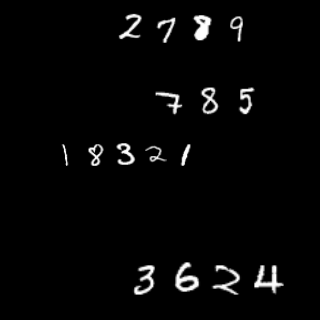 2 7 8 9
7 8 5
1 8 3 2 1
3 6 2 4